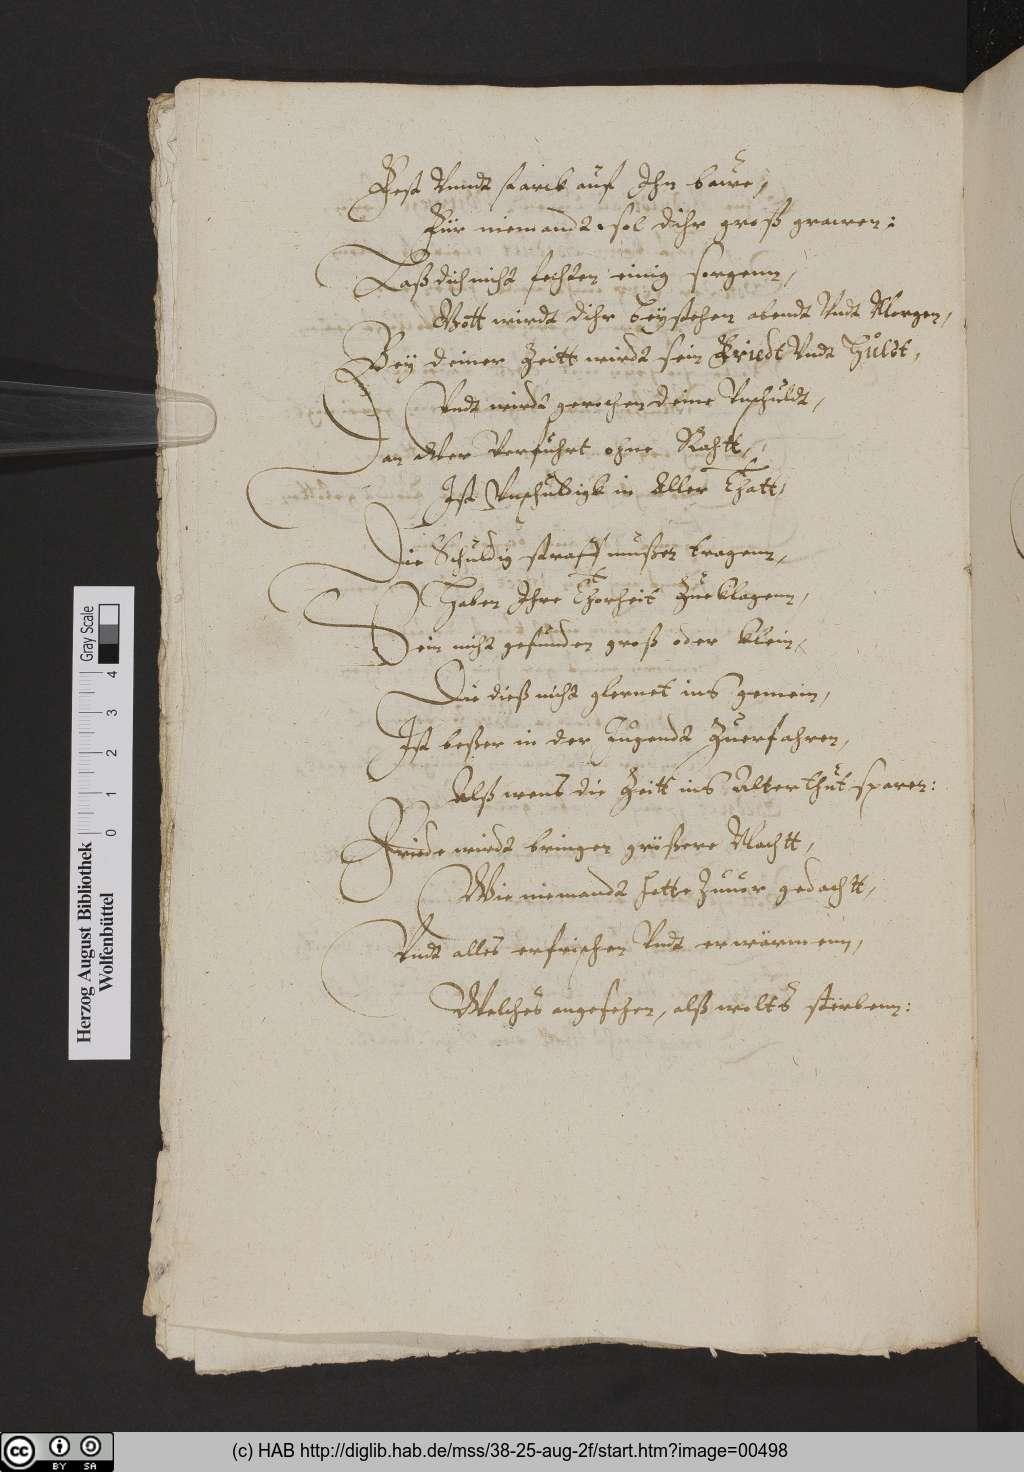 Fest Vnndt starck auf Ihn bawe,
Für niemandt sol dihr groß grawen:
Laß dich nicht fechten einig sorgenn,
Gott wirdt dihr beystehen abendt Vndt Morgen,
Bey deiner Zeitt wirdt sein Friedt Vndt Huldt,
Vndt wirdt gerochen deine Vnschuldt,
Dan wer Verfuhrt ohne Rahtt,
Ist Vnschuldigk in Aller Thatt,
Die Schuldig straff mußen tragenn,
Haben Ihre Thorheit Zue klagenn,
Sein nicht gefunden groß oder klein,
Die dieß nicht glernet ins gemein,
Ist beßer in der Jugendt Zuerfahren,
Alß wens die Zeitt ins Alter thut sparen:
Friede wirdt bringen größere Machtt,
Wie niemandt hette Zuuor gedachtt,
Vndt alles erfrischen Vndt erwärmenn,
Welches angesehen, alß wolts sterbenn:
Gray Scale
0 1 2 3 4
Herzog August Bibliothek
Wolfenbüttel
cc BY SA
(c) HAB http://diglib.hab.de/mss/38-25-aug-2f/start.htm?image=00498